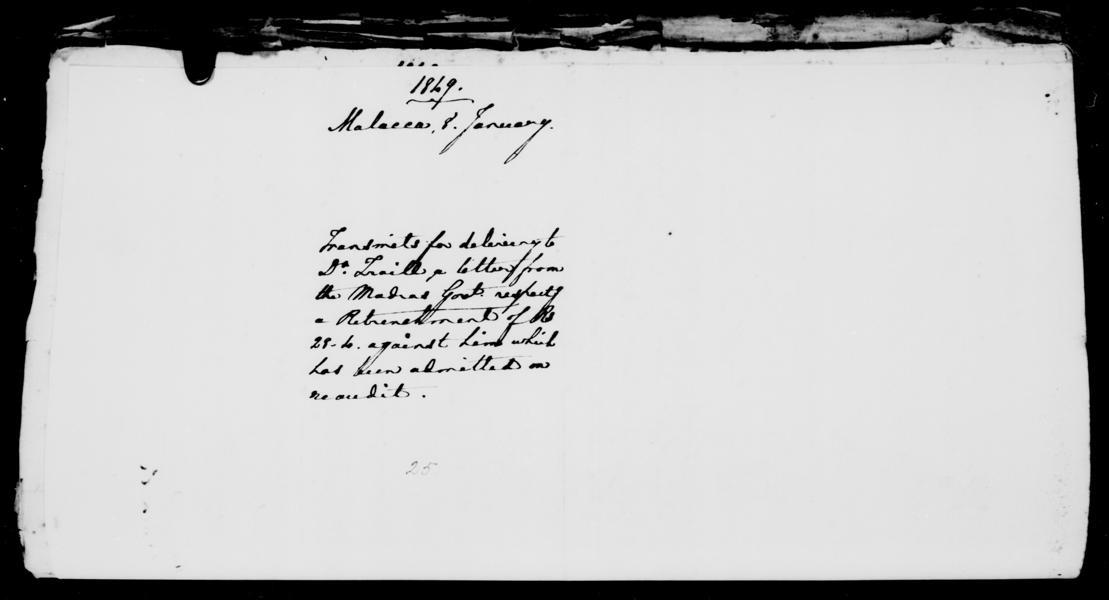 1849.
Malacca, 8. January.
Transmits for delivery to
Dr. Traill, a letter from
the Madras Govt. respectg
a Retrenchment of Rs
against him which
has been admitted on
re audit.
25